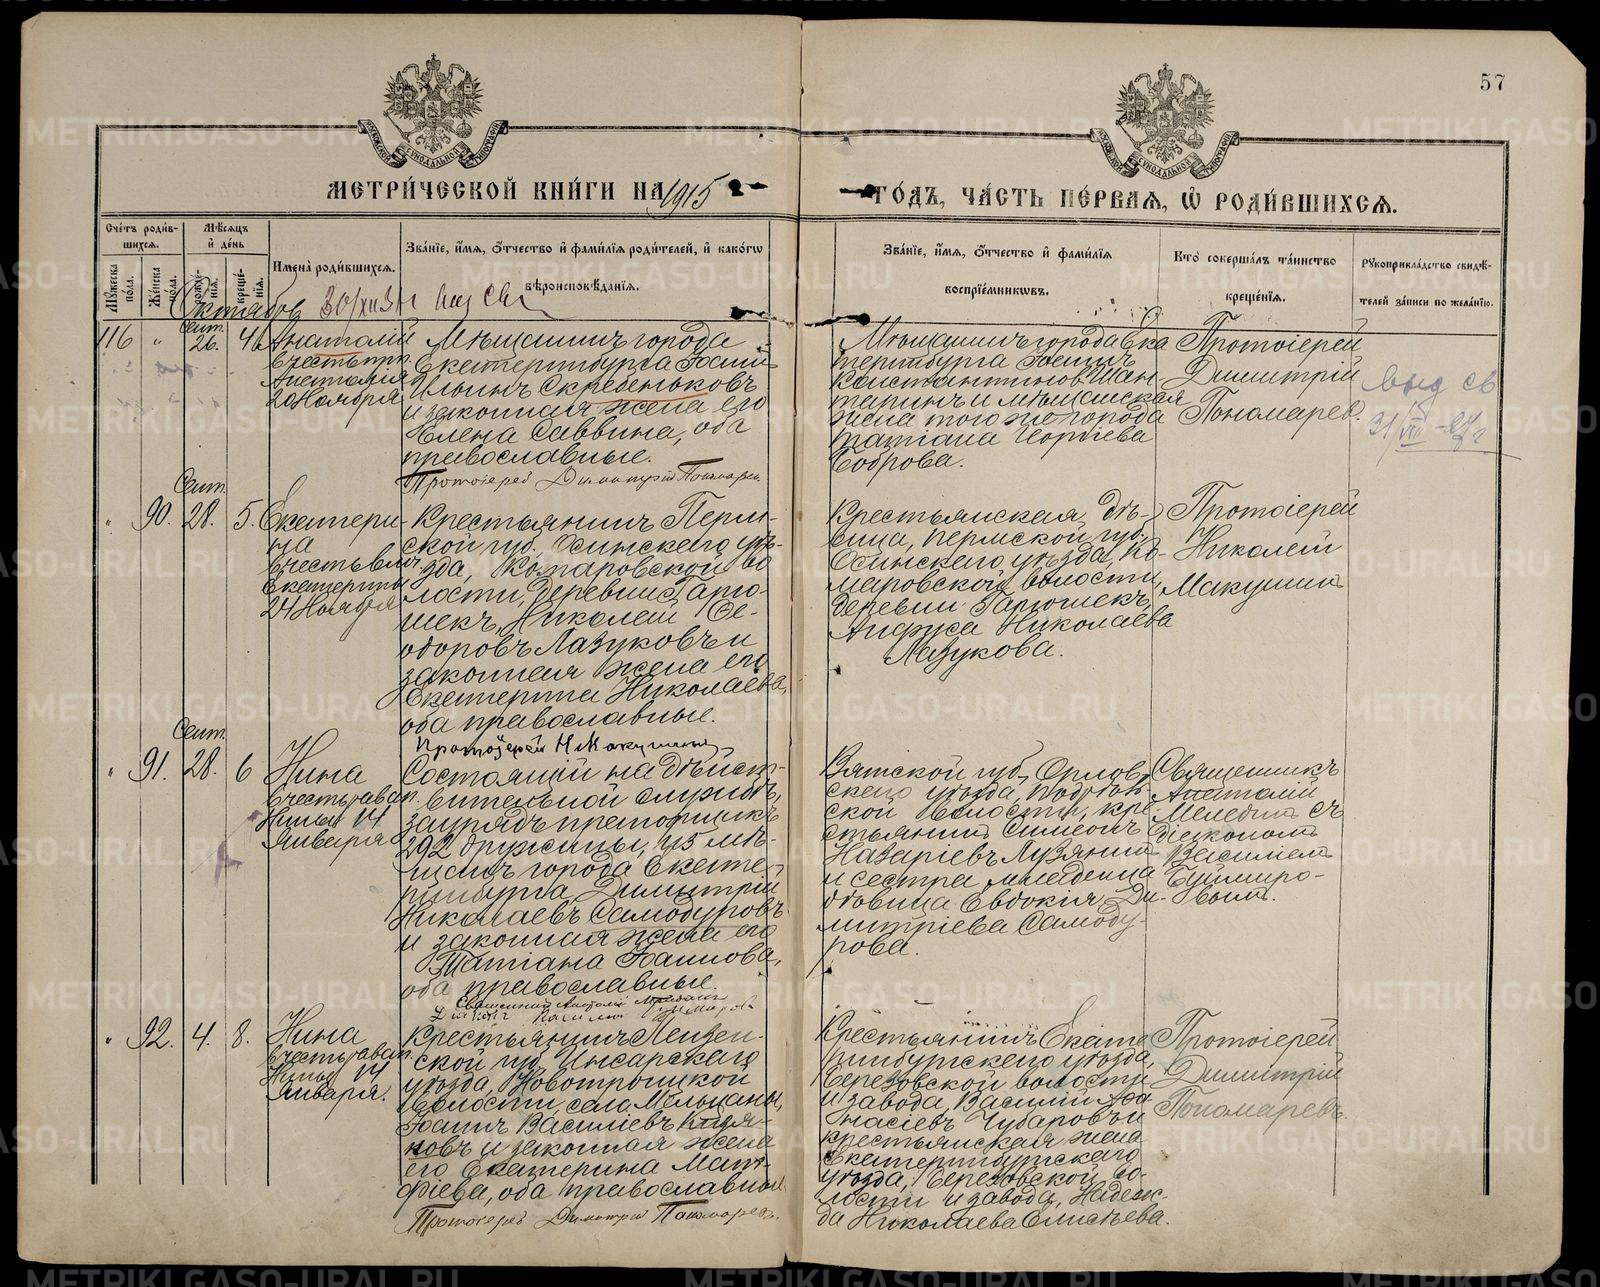 57
МЕТРИ́ЧЕСКОЙ КНИ́ГИ НА 1915
ГО́ДЪ, ЧА́СТЬ ПЕ́РВАЯ, Ѡ҆ РОДИ́ВШИХСЯ.
Сче́тъ роди́вшихся.
Мужеска пола.
Женска пола.
Мѣсяцъ и день
рожде́нія.
креще́нія.
Имена̀ роди́вшихся.
Зва́ніе, и҆мя, ѻ҆тчество и҆ фами́лія роди́телей, и҆ како́гѡ
вѣроисповѣданія.
Зва́ніе, и҆мя, ѻ҆тчество и҆ фами́лія
воспріе́мниковъ.
Кто̀ соверша́лъ та́инство
креще́нія.
Рукоприкла́дство свидѣ́-
телей за́писи по жела́нію.
Октябрь
116
"
Сент.
26.
4
Анатолій
въ честь прп.
Анатолія
20 Ноября
Мѣщанинъ города
Екатеринбурга Іоаннъ
Ильинъ Скребеньковъ
и законная жена его
Елена Саввина, оба
православные.
Протоіерей Димитрій Пономаревъ
Мѣщанинъ города Ека
теринбурга Іоаннъ
Константиновъ Шан
таринъ и мѣщанская
жена того же города
Татіана Георгіева
Боброва.
Протоіерей
Димитрій
Пономаревъ.
выд св
31/VIII-27 г
"
90.
Сент.
28.
5.
Екатери-
на
въ честь влмч.
Екатерины
24 Ноября
Крестьянинъ Перм-
ской губ., Осинскаго уѣ-
зда, Комаровской во
лости, деревни Гарю-
шекъ, Николай Ѳе-
доровъ Лазуковъ и
законная жена его
Екатерина Николаева,
оба православные.
Протоіерей Н Макушинъ
Крестьянская дѣ-
вица, Пермской губ.,
Осинскаго уѣзда, Ко-
маровской волости,
деревни Гарюшекъ,
Анфуса Николаева
Лазукова.
Протоіерей
Николай
Макушинъ
"
91.
Сент.
28.
6
Нина
въ честь равап.
Нины 14
Января
Состоящій на дѣйст-
вительной службѣ,
заурядъ прапорщикъ
292 дружины, изъ мѣ-
щанъ города Екате-
ринбурга Димитрій
Николаевъ Самодуровъ
и законная жена его
Татіана Іоаннова,
оба православные.
Вятской губ., Орлов-
скаго уѣзда,
ской волости, кре
стьянинъ Симеонъ
Назаріевъ Лузянинъ
и сестра младенца
дѣвица Евдокія Ди-
митріева Самоду-
рова.
Священникъ
Анатолій
съ
діакономъ
Василіемъ
"
92.
4.
8.
Нина
въ честь равап.
Нины 14
Января.
Крестьянинъ Пензен-
ской губ. Инсарскаго
уѣзда, Новотроицкой
волости, села Мельцаны,
Іоаннъ Василіевъ Кидя-
ковъ и законная жена
его Екатерина Мат-
фіева, оба православные
Протоіерей Димитрій Пономаревъ.
Крестьянинъ Екате
ринбургскаго уѣзда,
Березовской волости
и завода, Василій Аѳа
насіевъ Чубаровъ и
крестьянская жена
Екатеринбургскаго
уѣзда, Березовской во-
лости и завода, Надеж-
да Николаева Елисѣева.
Протоіерей
Димитрій
Пономаревъ.
METRIKI.GASO-URAL.RU